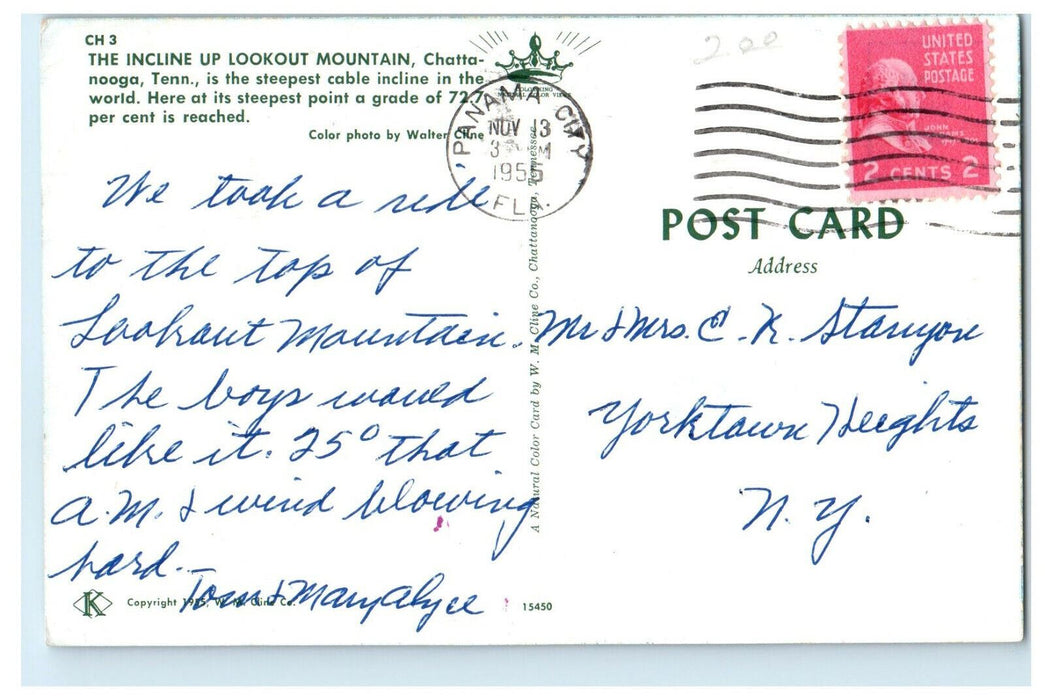 CH 3
THE INCLINE UP LOOKOUT MOUNTAIN, Chatta-
nooga, Tenn., is the steepest cable incline in the
world. Here at its steepest point a grade of 72.7
per cent is reached.
Color photo by Walter Cline
We took a ride
to the top of
Lookout Mountain.
The boys would
like it. 25° that
A.M. & wind blowing
hard.
Tom & Mary Alyce
K
Copyright 1955, W. M. Cline Co.
15450
A Natural Color Card by W. M. Cline Co., Chattanooga, Tennessee
PANAMA CITY
NOV 13
1955
FLA.
200
UNITED
STATES
POSTAGE
JOHN
ADAMS
2 CENTS 2
POST CARD
Address
Mr & Mrs. C. K. Stanyon
Yorktown Heights
N. Y.